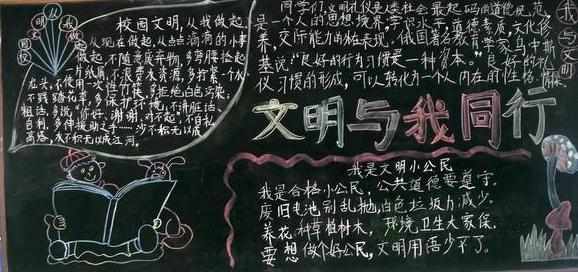 校园文明,从我做起,
从现在做起,从点点滴滴的小事
做起,不随意丢弃物,多弯腰捡起
片纸屑,不浪费水资源,多拧紧一个水
龙头,不使用一次性竹筷,多拒绝白色污染;
不践踏花草,多保护环境;不讲脏话、
粗话,多说"你好、谢谢、对不起";不自私
自利,多伸援助之手……沙不积无以成
高塔,水不积无以成江河。
同学们,文明礼仪是人类社会最起码的道德规范,
是一个人的思想境界、学识水平、道德素质、文化修
养、交际能力的外在表现。俄国著名教育学家乌申斯
基说:"良好的行为习惯是一种资本。"良好的礼
仪习惯的形成,可以转化为一个人内在的性格、情操
文明与我同行
我与文明
我是文明小公民
我是合格小公民,公共道德要遵守。
废旧电池别乱抛,白色垃圾力减少。
养花种草植树木,环境卫生大家保。
要想做个好公民,文明用语少不了。